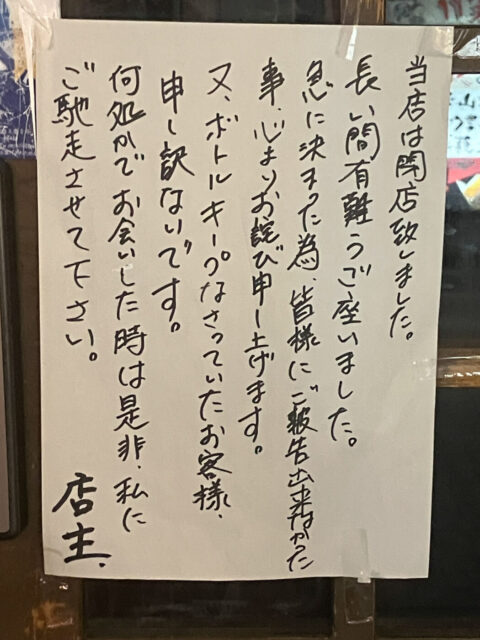 当店は閉店致しました。
長い間有難うご座いました。
急に決まった為、皆様にご報告出来なかった
事、心よりお詫び申し上げます。
又、ボトルキープなさっていたお客様、
申し訳ないです。
何処かでお会いした時は是非、私に
ご馳走させて下さい。
店主、